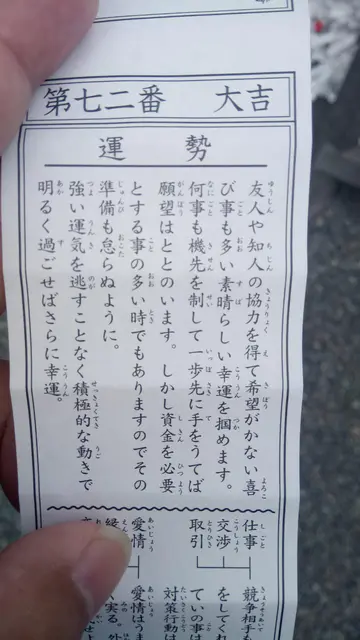 第七二番 大吉
運勢
友人や知人の協力を得て希望がかない喜
び事も多い素晴らしい幸運を掴めます。
何事も機先を制して一歩先に手をうてば
願望はととのいます。しかし資金を必要
とする事の多い時でもありますのでその
準備も怠らぬように。
強い運気を逃すことなく積極的な動きで
明るく過ごせばさらに幸運。
仕事
交渉
取引
競争相手も
をしてくれ
ていの事
対策行動は
愛情
愛情はうま
く実る。外